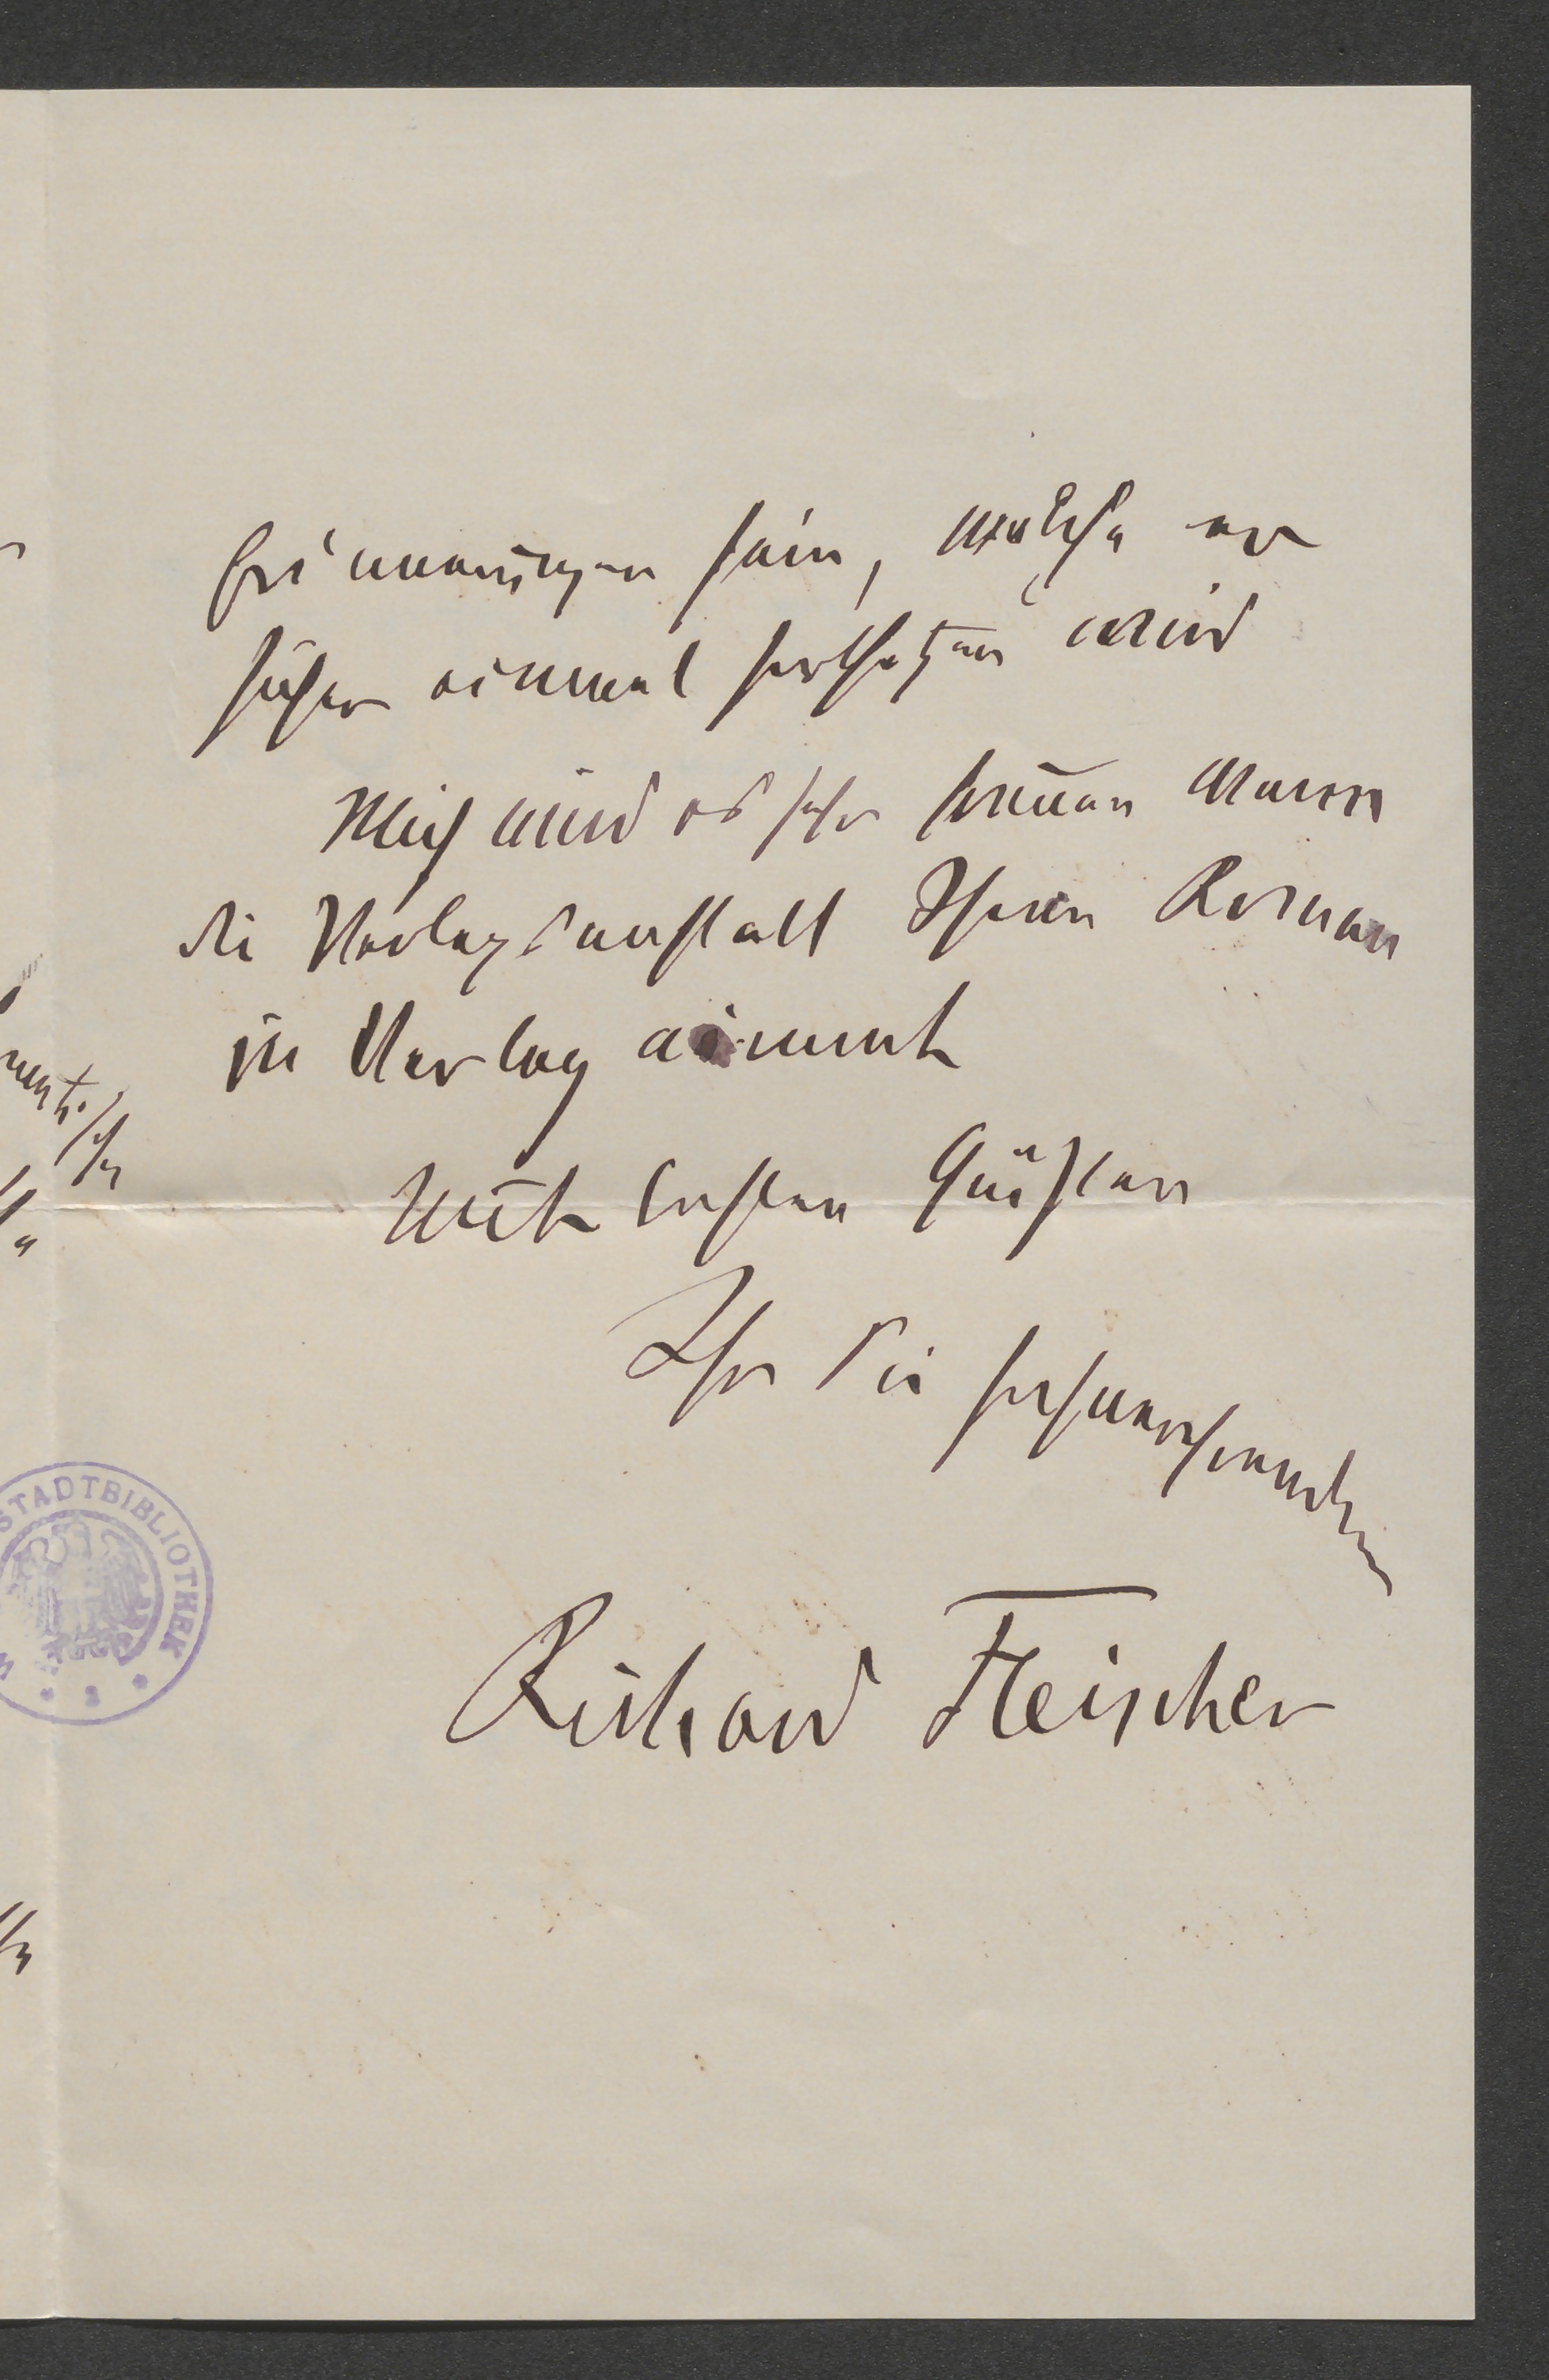 Erinnerungen sein, welche er
sicher einmal fortsetzen wird
Mich wird es sehr freuen wenn
die Verlagsanstalt Ihren Roman
in Verlag nimmt
Mit besten Grüßen
Ihr Sie hochverehrender
Richard Fleischer
STADTBIBLIOTHEK